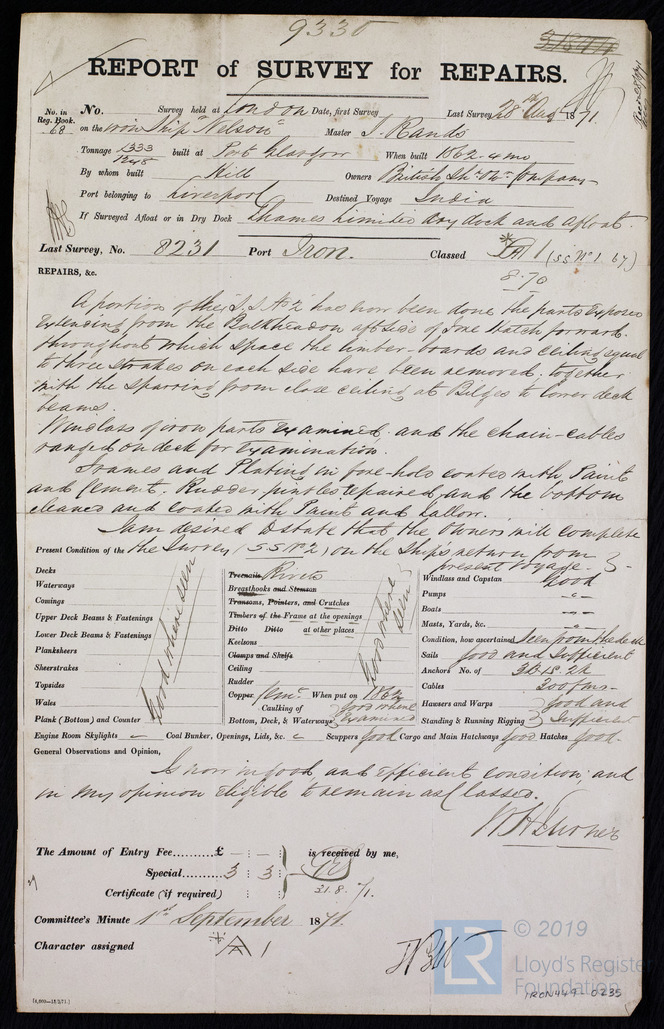 9335
REPORT of SURVEY for REPAIRS.
No. in Reg. Book. 68 No. Survey held at London Date, first Survey Last Survey 28th Aug 1871.
on the iron Ship "Nelson" Master J. Rands
Tonnage 1333 1248 built at Port Glasgow When built 1862. 4 mo
By whom built Owners British Company
Port belonging to Liverpool Destined Voyage India
If Surveyed Afloat or in Dry Dock Thames Limited dry dock and afloat.
Last Survey, No. 8231 Port Iron. Classed A 1 (SS No 1. 67)
8.70
REPAIRS, &c.
A portion of the S.S. No 2 has now been done the parts exposed
extending from the Bulkhead on aft side of fore hatch forward.
throughout which space the limber-boards and ceiling equal
to three strakes on each side have been removed. together
with the sparring from close ceiling at Bilges to lower deck
beams.
Windlass of iron parts examined, and the chain-cables
ranged on deck for examination.
Frames and Plating in fore-hold coated with Paint
and Cement. Rudder pintles repaired and the bottom
cleaned and coated with Paint and Tallow.
I am desired to state that the Owners will complete
Present Condition of the the Survey (S S No 2) on the Ships return from
present voyage.
Decks
Waterways
Comings
Upper Deck Beams & Fastenings
Lower Deck Beams & Fastenings
Planksheers
Sheerstrakes
Topsides
Wales
Plank (Bottom) and Counter
Good where seen
Treenails Rivets
Breasthooks and Stemson
Transoms, Pointers, and Crutches
Timbers of the Frame at the openings
Ditto Ditto at other places
Keelsons
Clamps and Shelfs
Ceiling
Rudder
Good where seen
Copper Cemt. When put on 1862
Caulking of Bottom, Deck, & Waterways Good where examined
Windlass and Capstan Good
Pumps -"-
Boats -"-
Masts, Yards, &c. -"-
Condition, how ascertained Seen from the deck
Sails Good and Sufficient
Anchors No. of 3B. 1S. 2K
Cables 300 fms-
Hawsers and Warps Good and
Standing & Running Rigging Sufficient
Engine Room Skylights - Coal Bunker, Openings, Lids, &c. - Scuppers Good Cargo and Main Hatchways Good Hatches Good.
General Observations and Opinion,
Is now in good, and efficient condition, and
in my opinion eligible to remain as Classed.
W H Turner
The Amount of Entry Fee..........£ - : - : is received by me,
Special..........3 : 3 :
Certificate (if required) : : 31.8.71.
Committee's Minute 1st September 1871.
Character assigned A 1
© 2019
LR
Lloyd's Register
Foundation
IRON449-0235